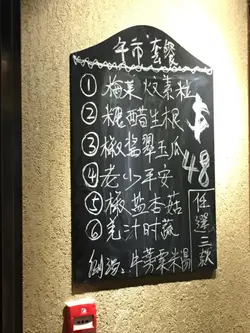 午市套餐
① 梅菜炆素粒
② 糖醋生根
③ 椒醬翠玉瓜
④ 老少平安
⑤ 椒鹽杏菇
⑥ 羌汁时蔬
例湯：牛蒡粟米湯
$48
任擇三款